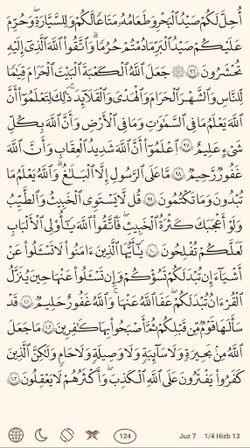 أُحِلَّ لَكُمْ صَيْدُ ٱلْبَحْرِ وَطَعَامُهُۥ مَتَٰعًا لَّكُمْ وَلِلسَّيَّارَةِ ۖ وَحُرِّمَ
عَلَيْكُمْ صَيْدُ ٱلْبَرِّ مَا دُمْتُمْ حُرُمًا ۗ وَٱتَّقُوا۟ ٱللَّهَ ٱلَّذِىٓ إِلَيْهِ
تُحْشَرُونَ ٩٦ ۞ جَعَلَ ٱللَّهُ ٱلْكَعْبَةَ ٱلْبَيْتَ ٱلْحَرَامَ قِيَٰمًا
لِّلنَّاسِ وَٱلشَّهْرَ ٱلْحَرَامَ وَٱلْهَدْىَ وَٱلْقَلَٰٓئِدَ ۚ ذَٰلِكَ لِتَعْلَمُوٓا۟ أَنَّ
ٱللَّهَ يَعْلَمُ مَا فِى ٱلسَّمَٰوَٰتِ وَمَا فِى ٱلْأَرْضِ وَأَنَّ ٱللَّهَ بِكُلِّ
شَىْءٍ عَلِيمٌ ٩٧ ٱعْلَمُوٓا۟ أَنَّ ٱللَّهَ شَدِيدُ ٱلْعِقَابِ وَأَنَّ ٱللَّهَ
غَفُورٌ رَّحِيمٌ ٩٨ مَّا عَلَى ٱلرَّسُولِ إِلَّا ٱلْبَلَٰغُ ۗ وَٱللَّهُ يَعْلَمُ مَا
تُبْدُونَ وَمَا تَكْتُمُونَ ٩٩ قُل لَّا يَسْتَوِى ٱلْخَبِيثُ وَٱلطَّيِّبُ
وَلَوْ أَعْجَبَكَ كَثْرَةُ ٱلْخَبِيثِ ۚ فَٱتَّقُوا۟ ٱللَّهَ يَٰٓأُو۟لِى ٱلْأَلْبَٰبِ
لَعَلَّكُمْ تُفْلِحُونَ ١٠٠ يَٰٓأَيُّهَا ٱلَّذِينَ ءَامَنُوا۟ لَا تَسْـَٔلُوا۟ عَنْ
أَشْيَآءَ إِن تُبْدَ لَكُمْ تَسُؤْكُمْ وَإِن تَسْـَٔلُوا۟ عَنْهَا حِينَ يُنَزَّلُ
ٱلْقُرْءَانُ تُبْدَ لَكُمْ عَفَا ٱللَّهُ عَنْهَا ۗ وَٱللَّهُ غَفُورٌ حَلِيمٌ ١٠١ قَدْ
سَأَلَهَا قَوْمٌ مِّن قَبْلِكُمْ ثُمَّ أَصْبَحُوا۟ بِهَا كَٰفِرِينَ ١٠٢ مَا جَعَلَ
ٱللَّهُ مِنۢ بَحِيرَةٍ وَلَا سَآئِبَةٍ وَلَا وَصِيلَةٍ وَلَا حَامٍ ۙ وَلَٰكِنَّ ٱلَّذِينَ
كَفَرُوا۟ يَفْتَرُونَ عَلَى ٱللَّهِ ٱلْكَذِبَ ۖ وَأَكْثَرُهُمْ لَا يَعْقِلُونَ ١٠٣
124 Juz 7 1/4 Hizb 13